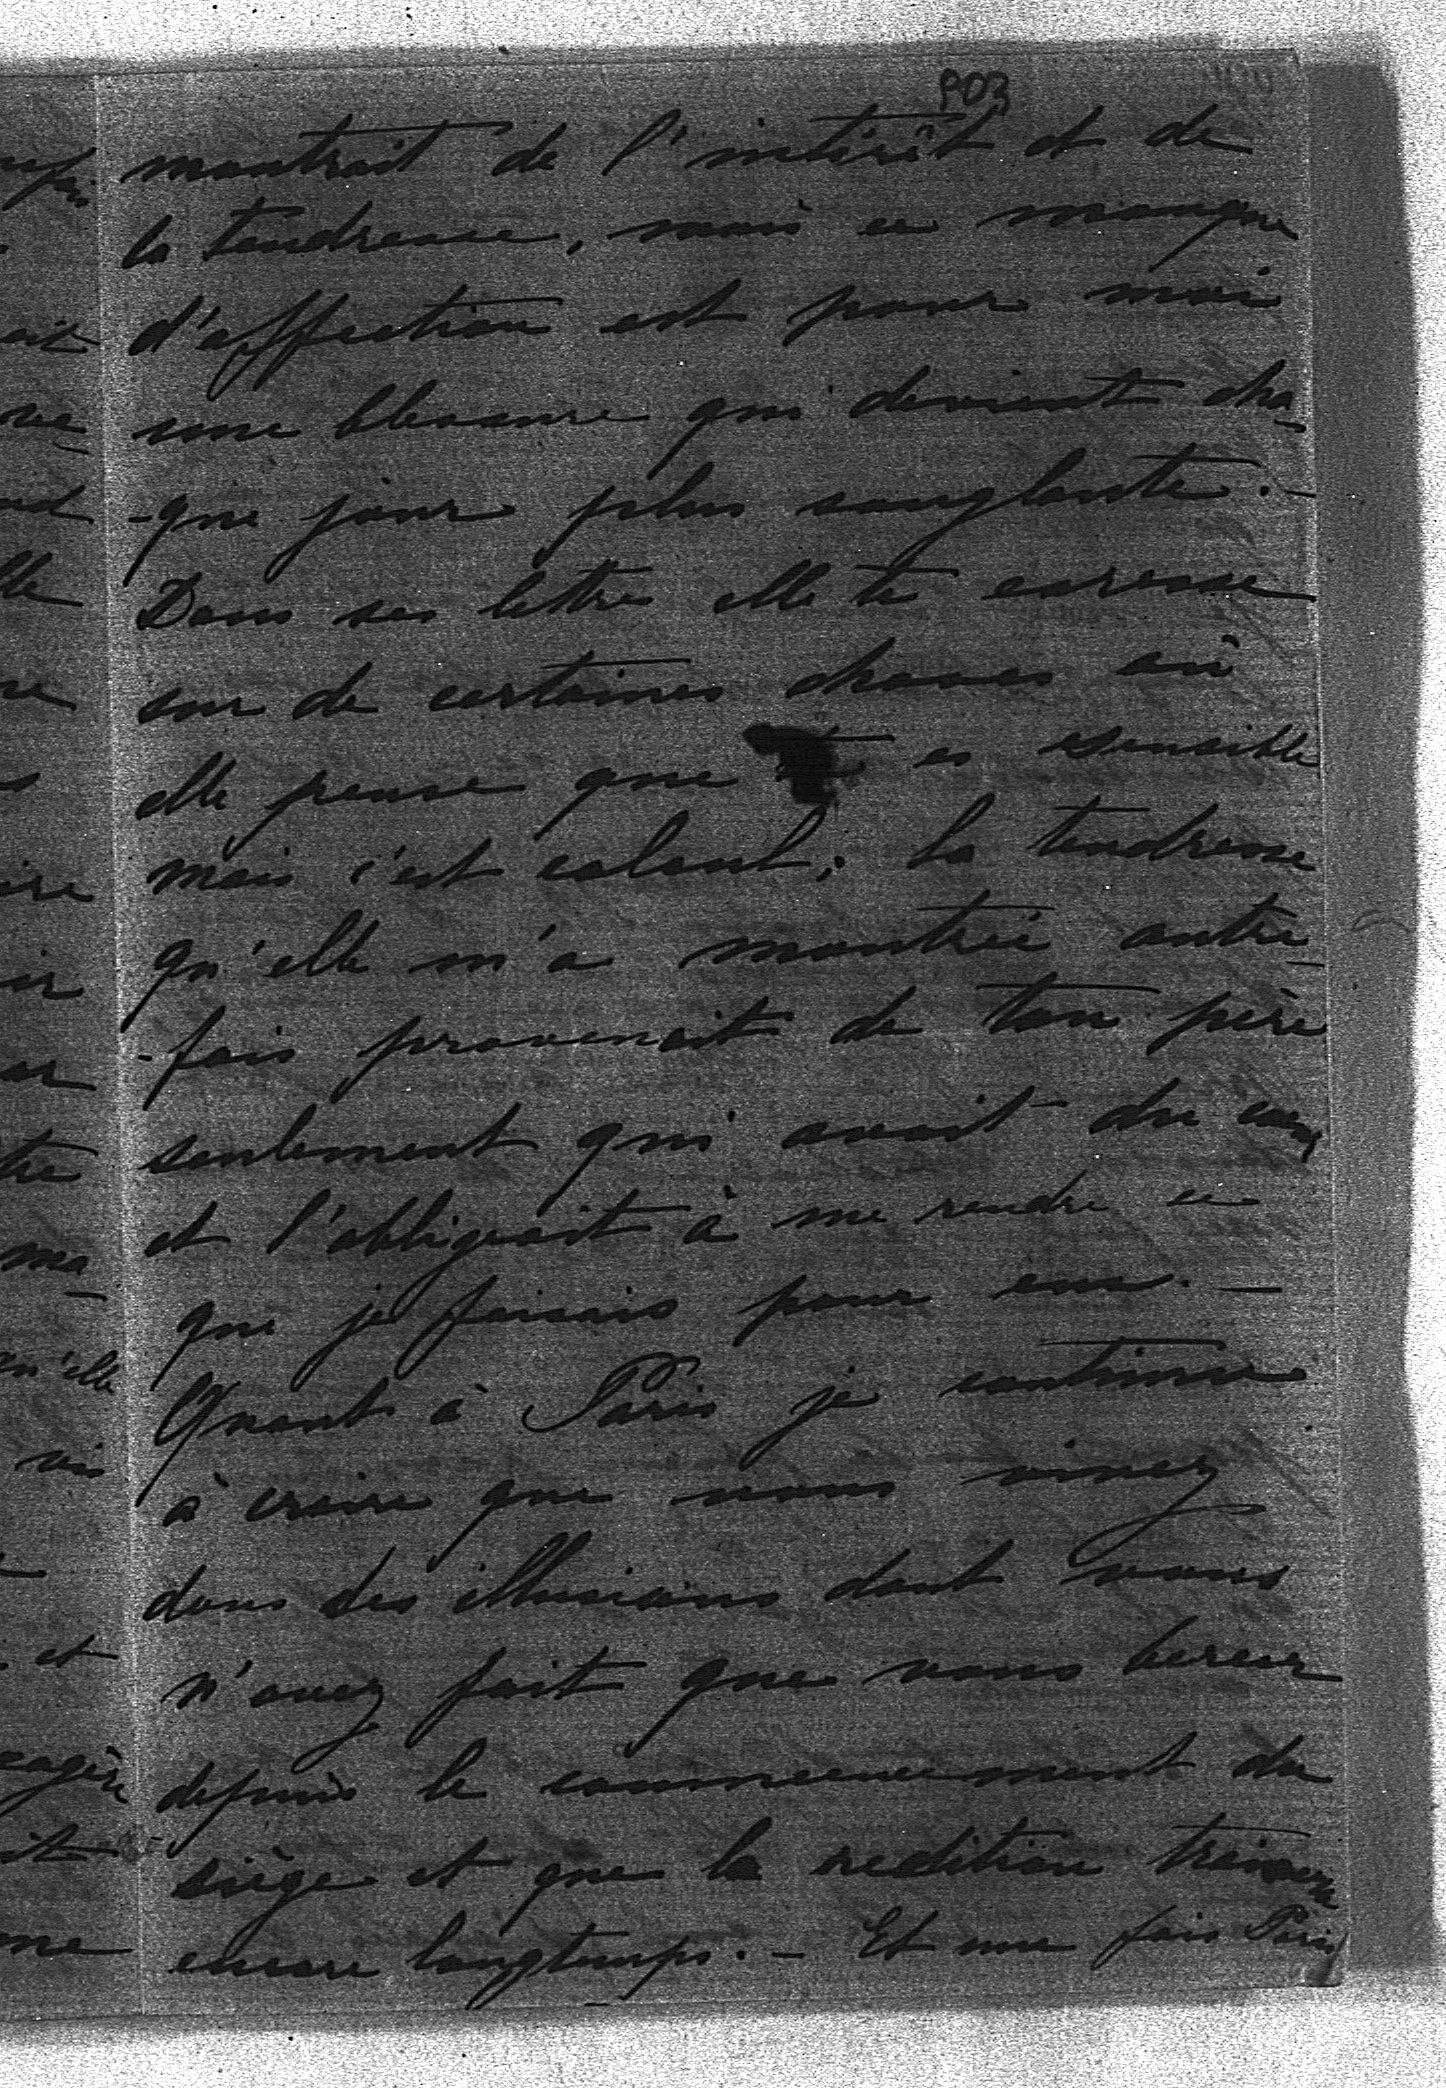 903
montrait de l'intérêt et de
la tendresse, mais ce manque
d'affection est pour moi
une blessure qui devient cha-
-que jour plus sanglante. -
Dans ses lettre elle te caresse
sur de certaines choses où
elle pense que es sensible
mais c'est calcul; la tendresse
qu'elle m'a montrée autre-
-fois provenait de ton père
seulement qui avait du cœur
et l'obligeait à me rendre ce
que je faisais pour eux. -
Quant à Paris je continue
à croire que vous vivez
dans des illusions dont vous
n'avez fait que vous bercer
depuis le commencement du
siège et que la redition trainera
encore longtemps. - Et une fois Paris